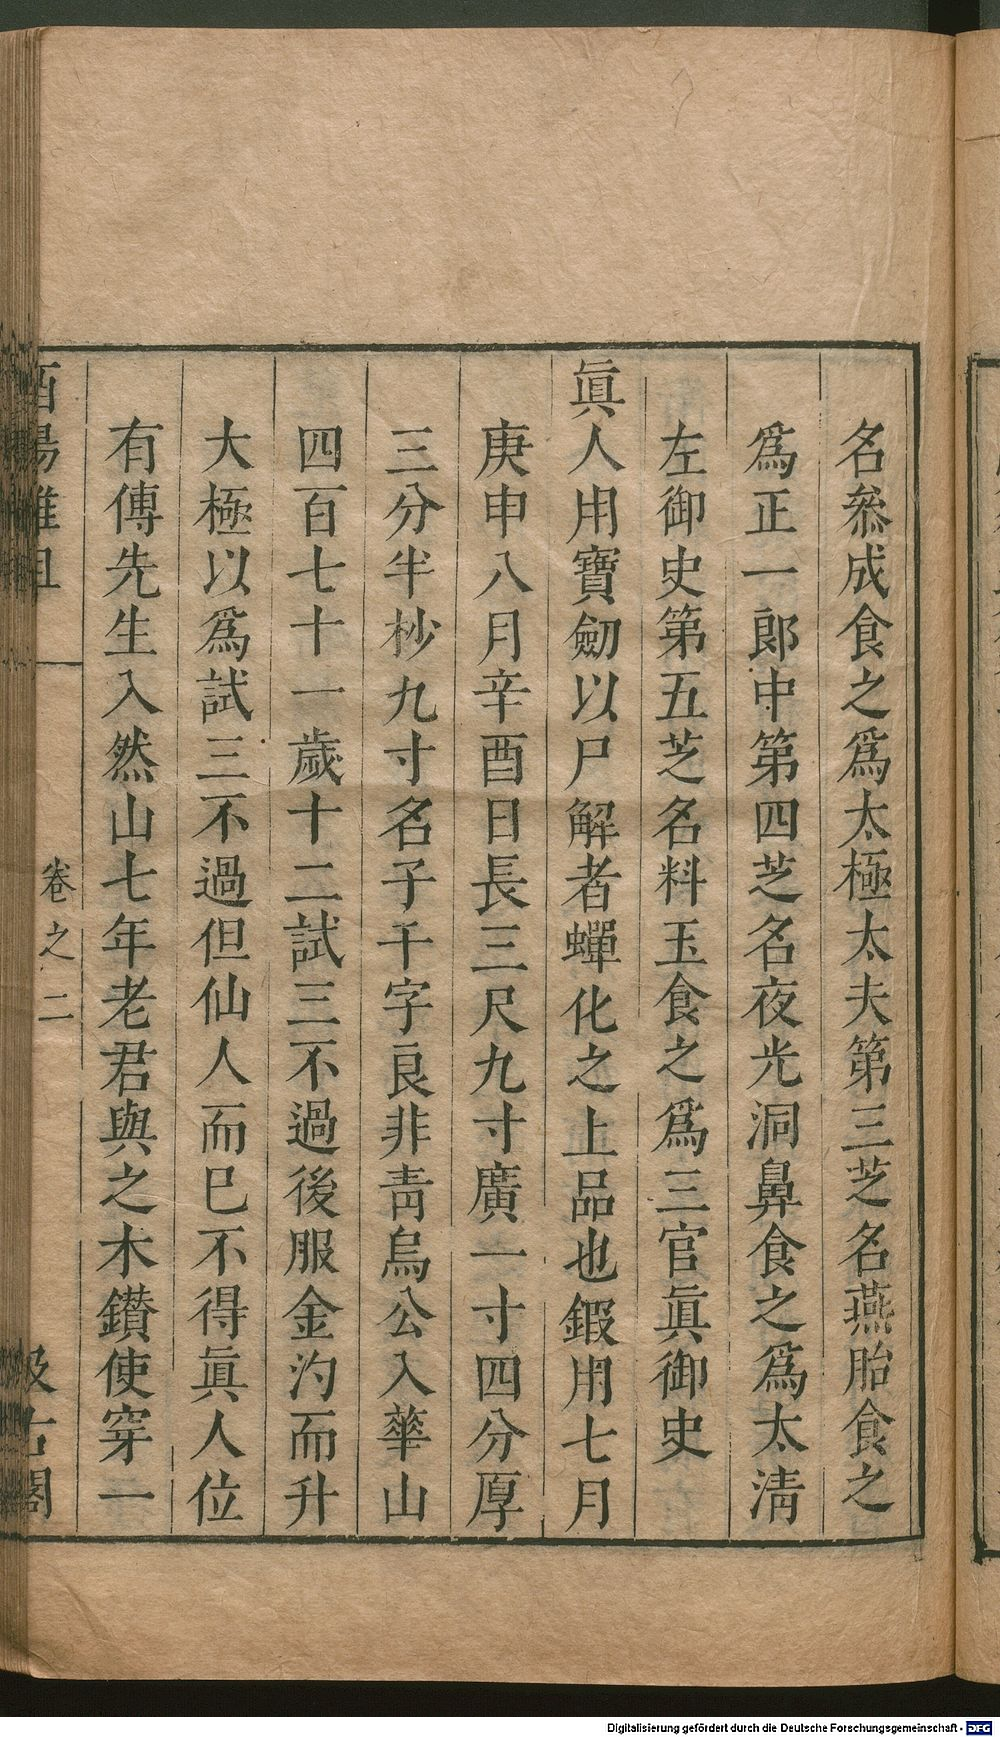 名叅成食之爲太極太夫第三芝名燕胎食之
爲正一郎中第四芝名夜光洞鼻食之爲太淸
左御史第五芝名料玉食之爲三官眞御史
眞人用寶劒以尸解者蟬化之上品也鍜用七月
庚申八月辛酉日長三尺九寸廣一寸四分厚
三分半杪九寸名子干字良非靑烏公入華山
四百七十一歲十二試三不過後服金汋而升
大極以爲試三不過但仙人而已不得眞人位
有傳先生入然山七年老君與之木鑚使穿一
酉陽雜俎
卷之二
汲古閣
Digitalisierung gefördert durch die Deutsche Forschungsgemeinschaft - DFG